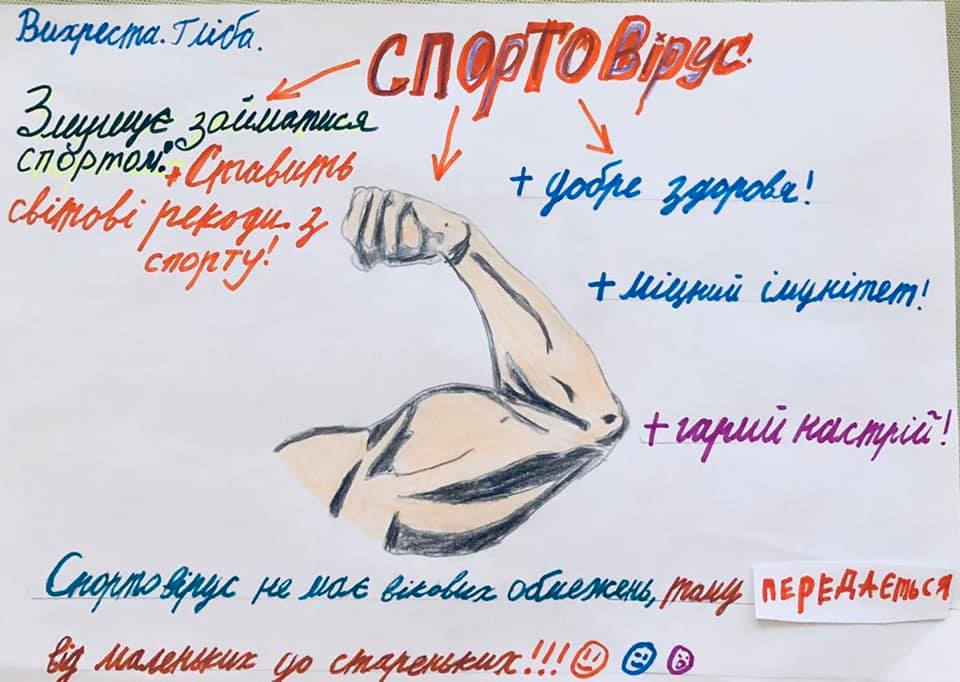 Вихреста. Гліба.
СПОРТОВірус.
Змушує займатися
спортом!
+ Ставить
світові рекоди з
спорту!
+ добре здоровя!
+ міцний імунітет!
+ гарий настрій!
Спортовірус не має вікових обмежень, тому ПЕРЕДАЄТЬСЯ
від маленьких до стареньких!!!